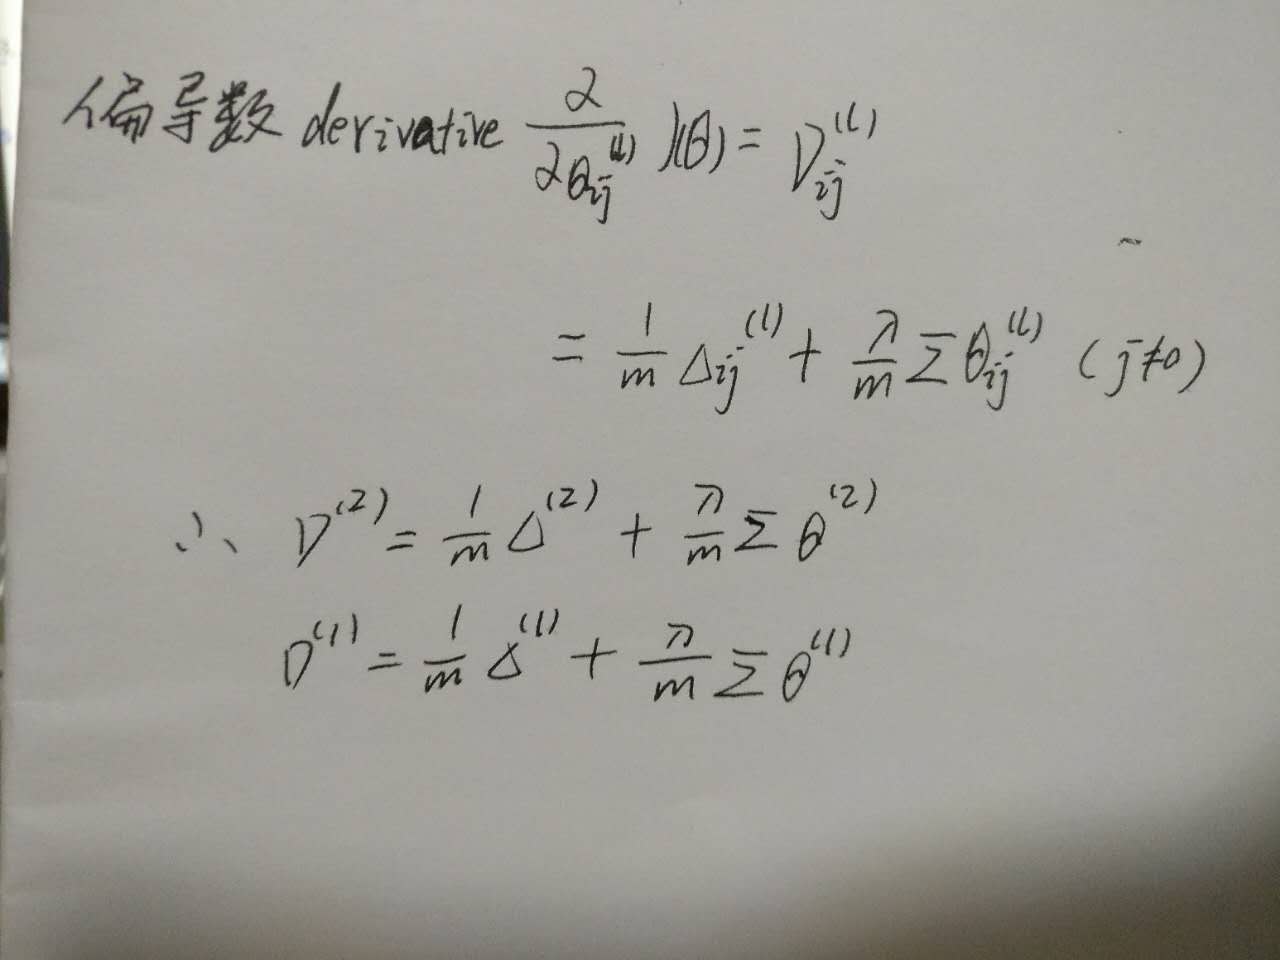 偏导数 derivative ∂/∂θij^(l) J(θ) = Dij^(l)
= 1/m Δij^(l) + λ/m Σ θij^(l) (j≠0)
∴ D^(2) = 1/m Δ^(2) + λ/m Σ θ^(2)
D^(1) = 1/m Δ^(1) + λ/m Σ θ^(1)